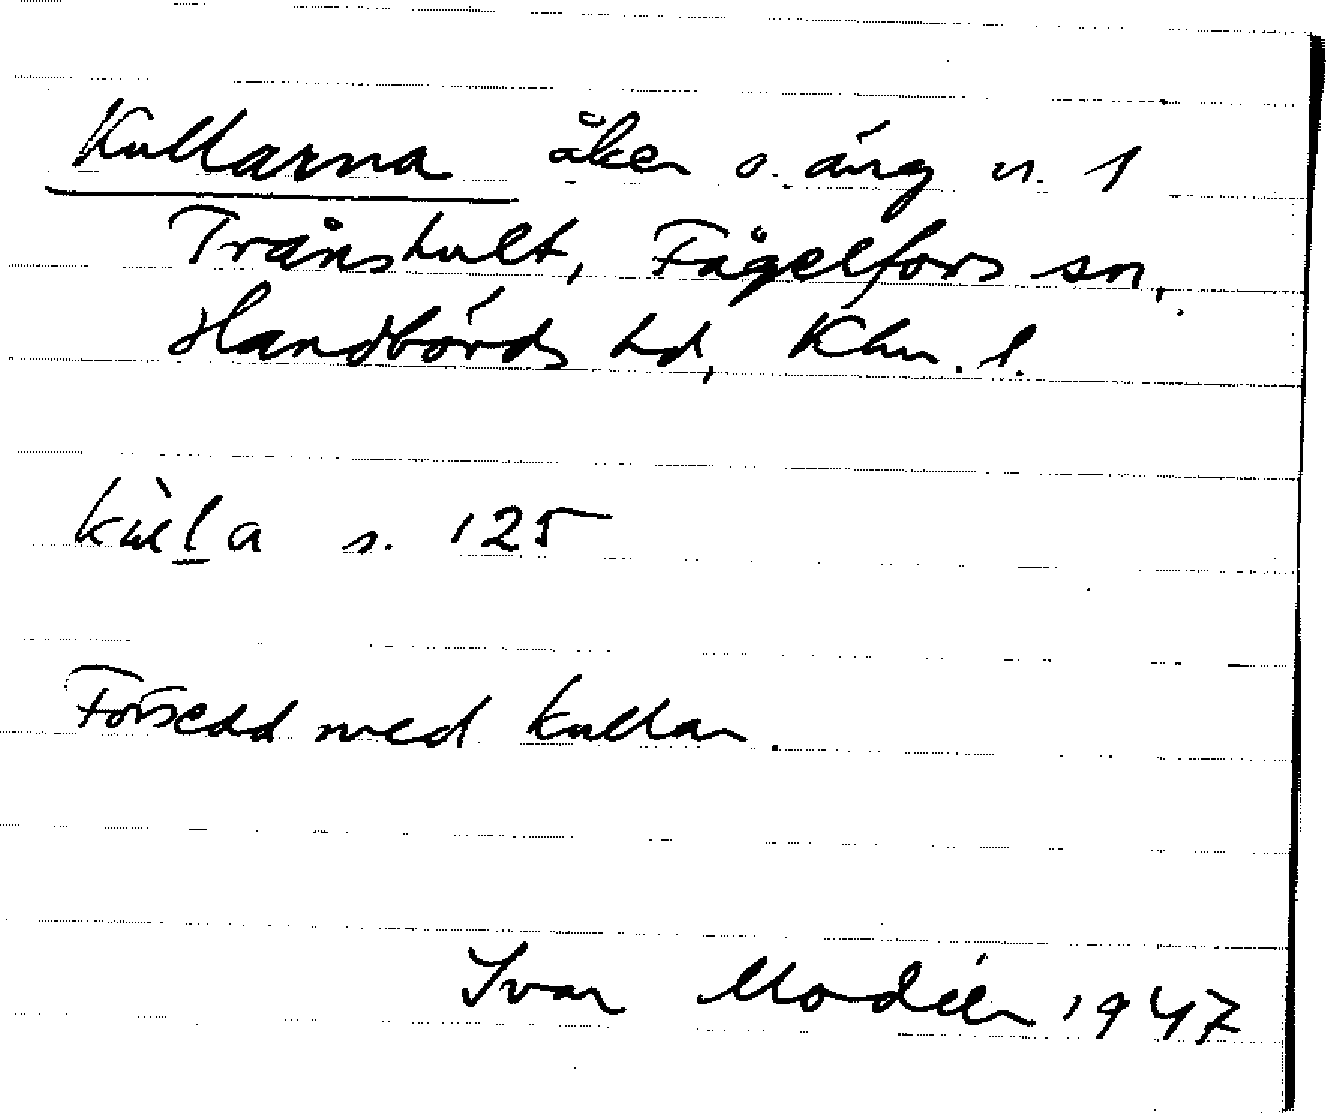 Kullarna åker o. äng n. 1
Trånshult, Fågelfors sn,
Handbörds hd, Klm. l.
kùl̲a s. 125
Försedd med kullar.
Ivar Modéer 1947